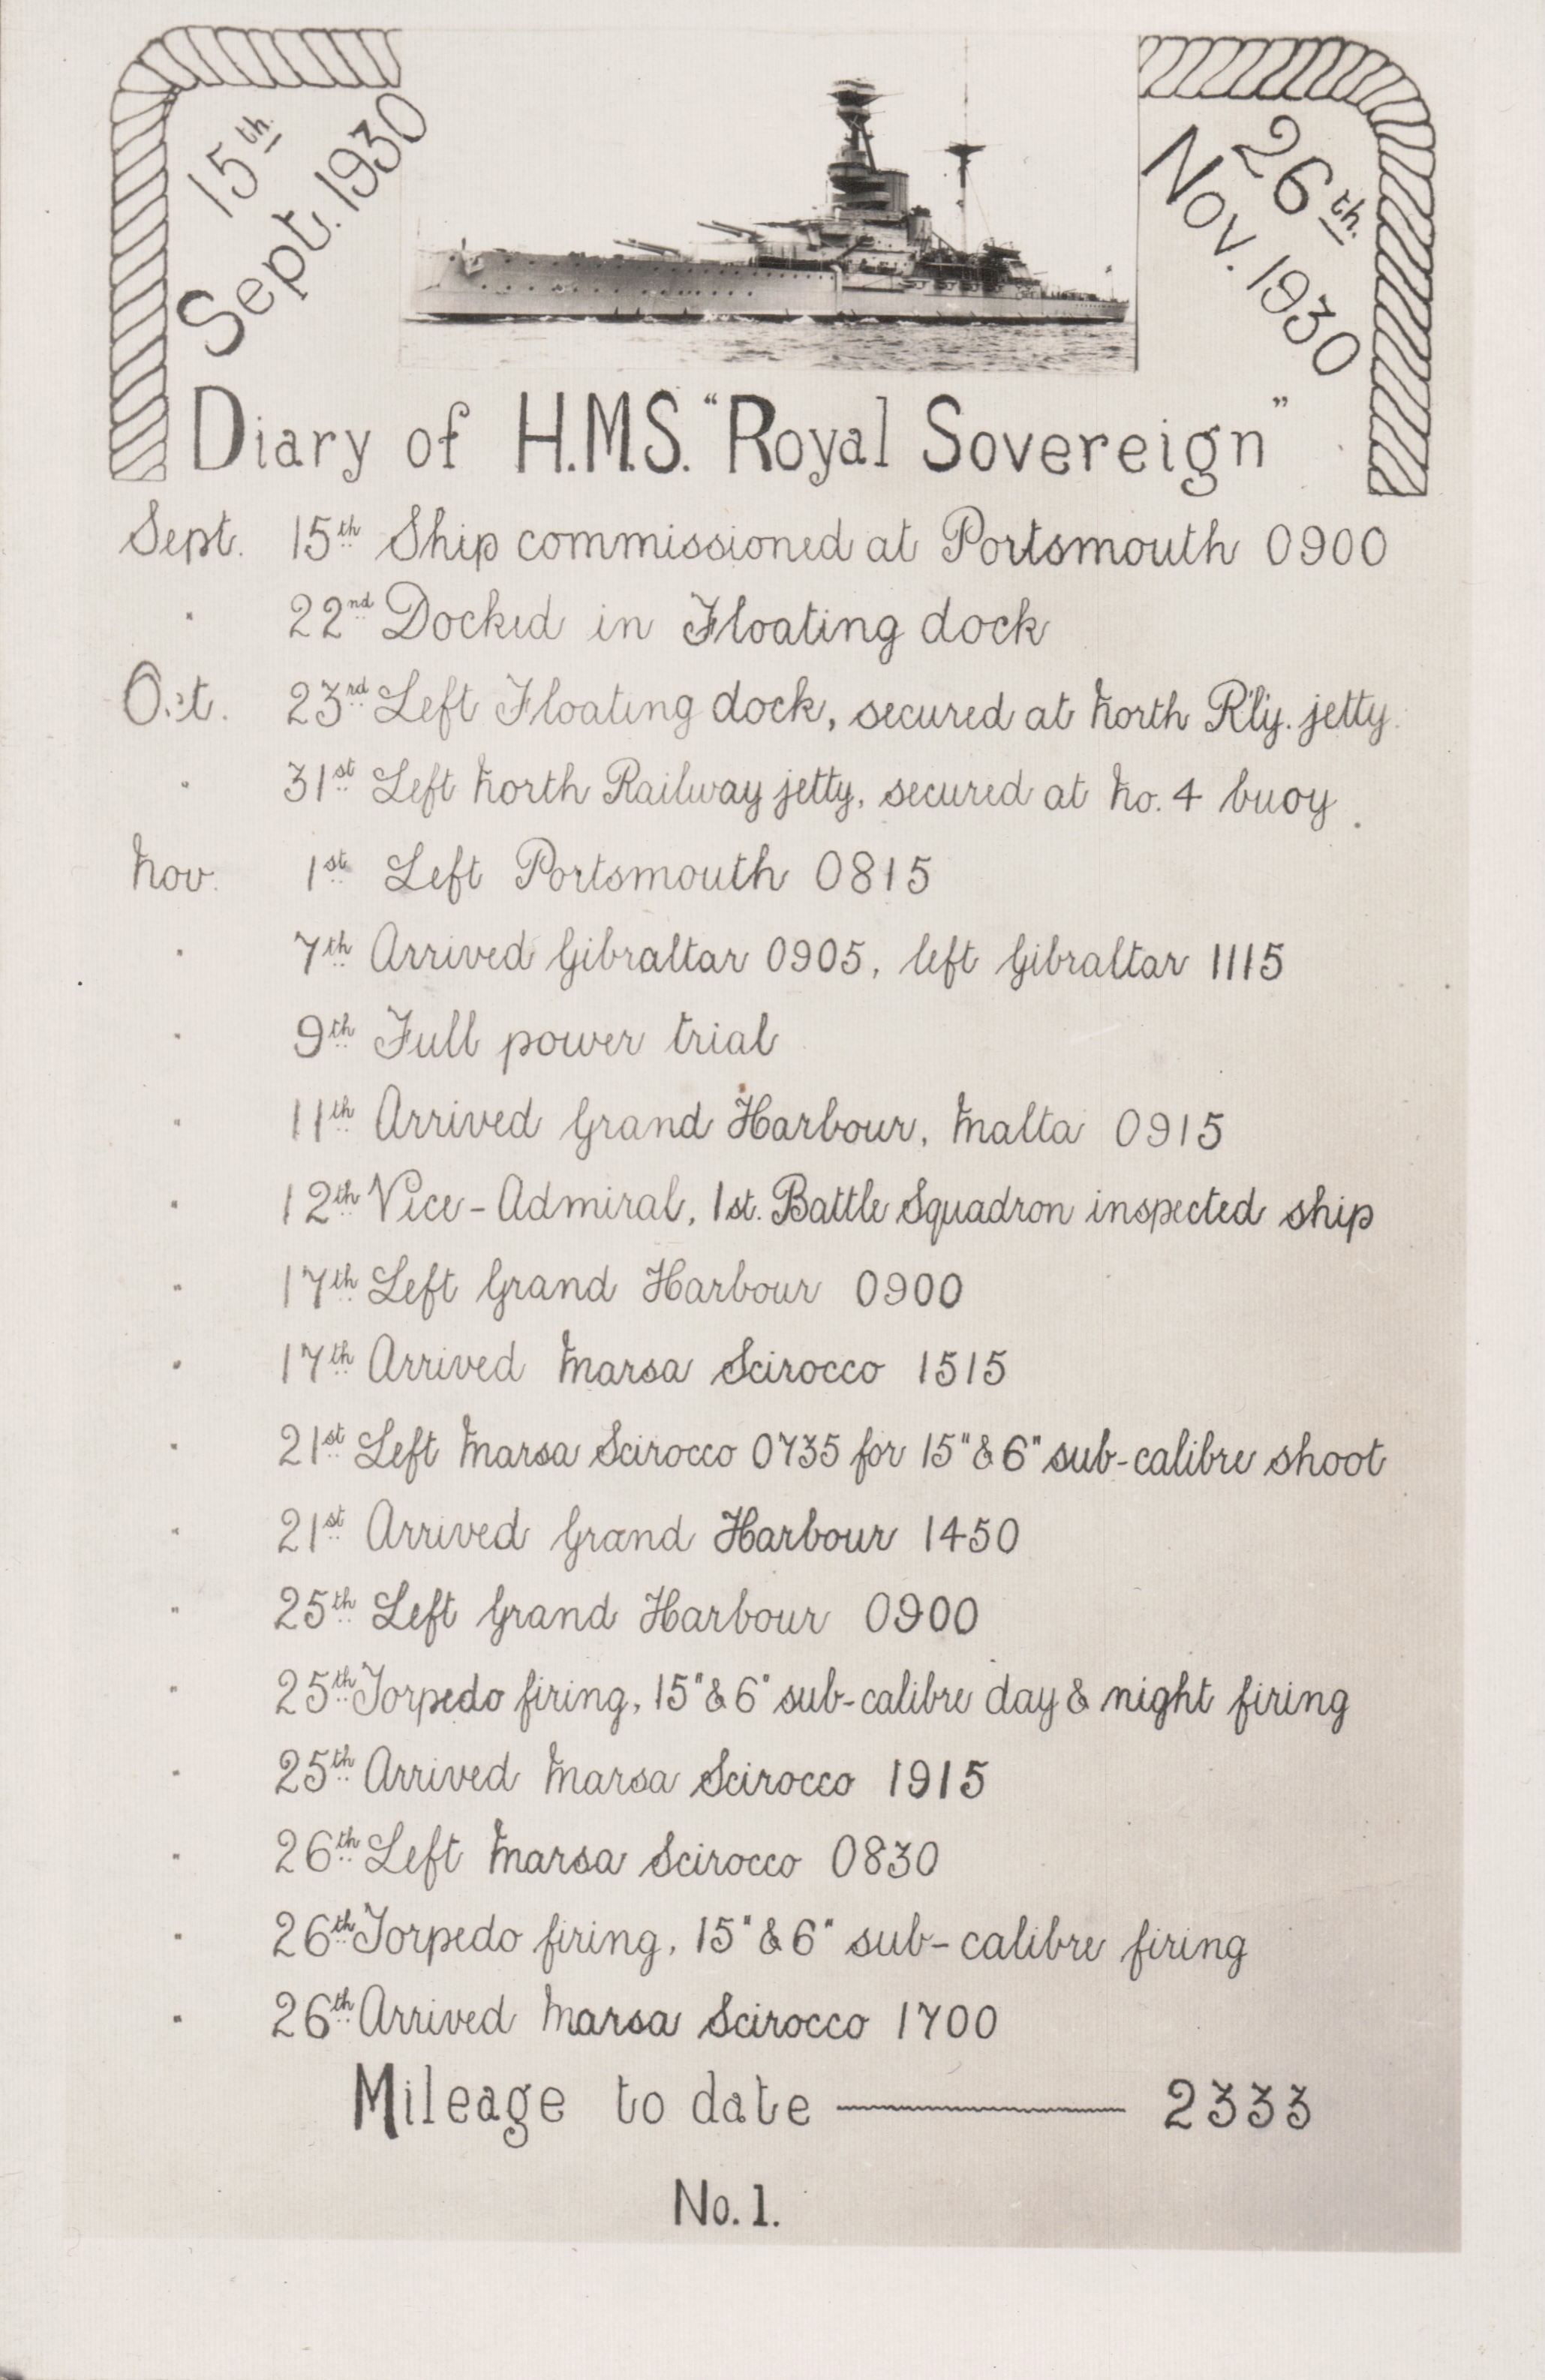 15th Sept. 1930
26th. Nov. 1930
Diary of H.M.S. "Royal Sovereign"
Sept. 15th Ship commissioned at Portsmouth 0900
" 22nd Docked in Floating dock
Oct. 23rd Left Floating dock, secured at North R'ly. jetty.
" 31st Left North Railway jetty, secured at No. 4 buoy.
Nov. 1st Left Portsmouth 0815
" 7th Arrived Gibraltar 0905, left Gibraltar 1115
" 9th Full power trial
" 11th Arrived Grand Harbour, Malta 0915
" 12th Vice-Admiral, 1st. Battle Squadron inspected ship
" 17th Left Grand Harbour 0900
" 17th Arrived Marsa Scirocco 1515
" 21st Left Marsa Scirocco 0735 for 15" & 6" sub-calibre shoot
" 21st Arrived Grand Harbour 1450
" 25th Left Grand Harbour 0900
" 25th Torpedo firing, 15" & 6" sub-calibre day & night firing
" 25th Arrived Marsa Scirocco 1915
" 26th Left Marsa Scirocco 0830
" 26th Torpedo firing, 15" & 6" sub-calibre firing
" 26th Arrived Marsa Scirocco 1700
Mileage to date — 2333
No. 1.